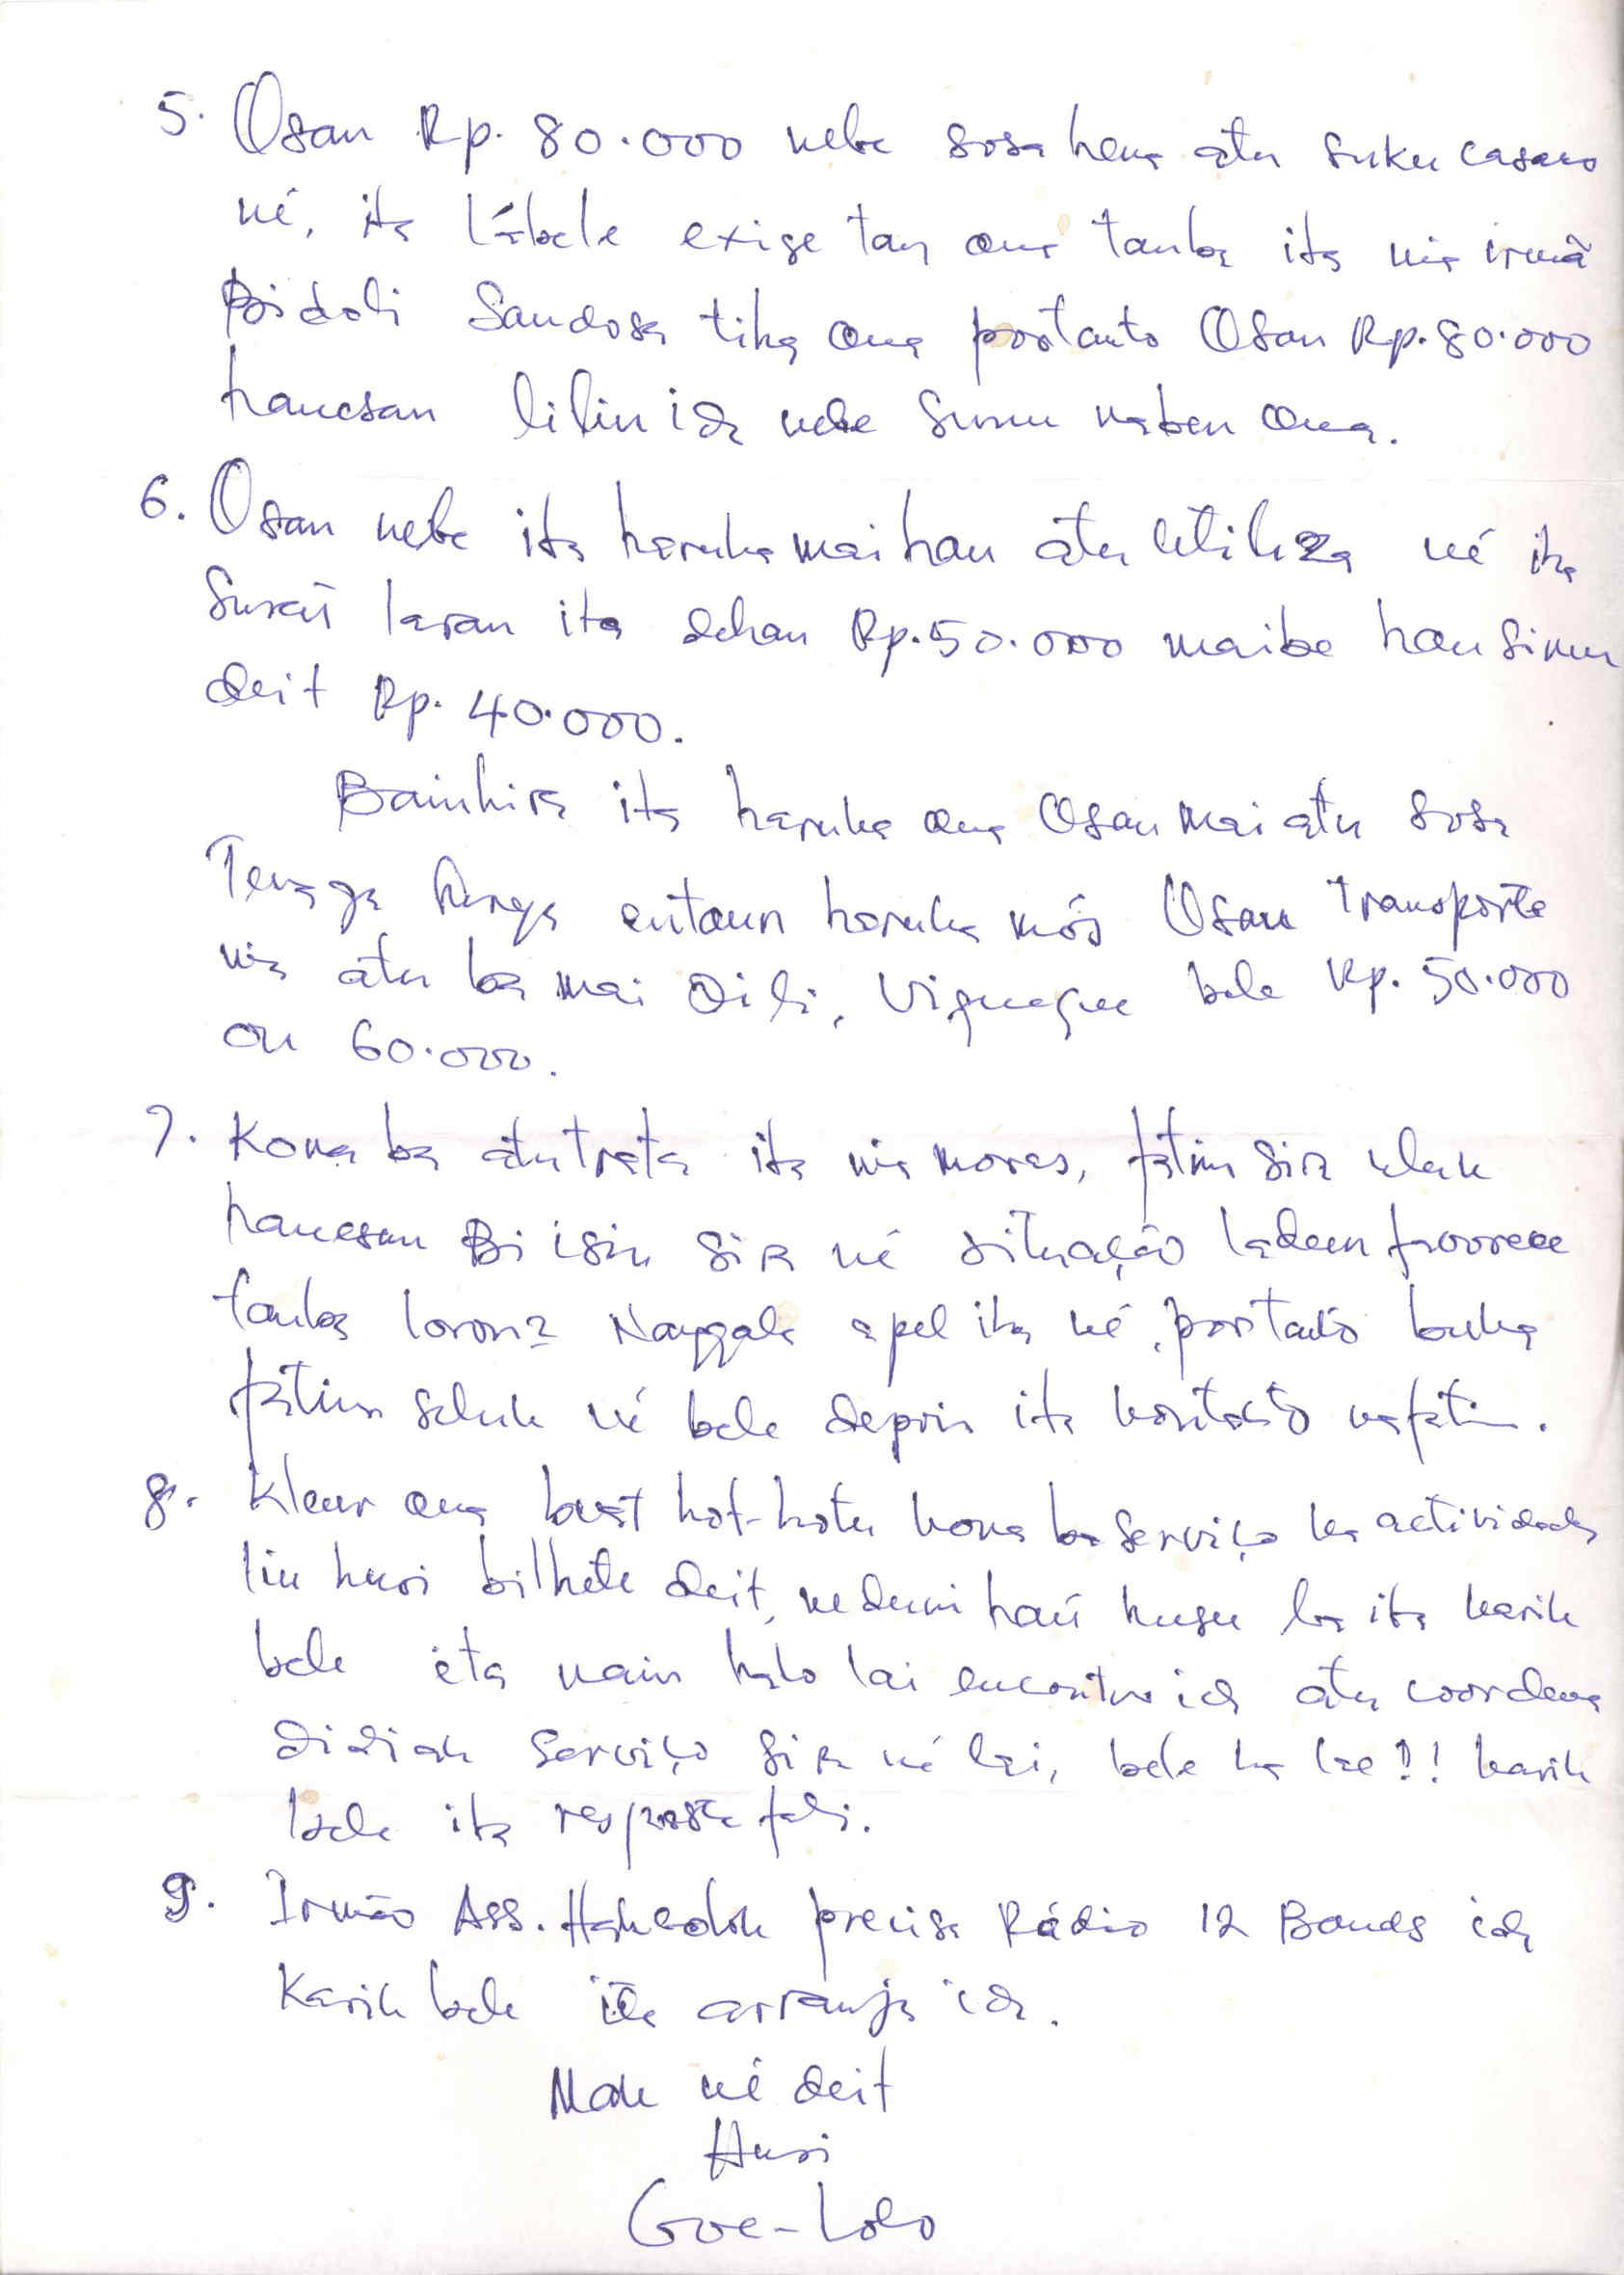 5. Osan Rp. 80.000 nebe sosa hena atu suku casaco
né, ita lábele exige tan ona tanba ita nia irmã
Bidoli Sandosa tiha ona portanto Osan Rp. 80.000
hanesan lilin ida nebe sunu naben ona.
6. Osan nebe ita haruka mai hau atu utiliza né iha
surat laran ita dehan Rp. 50.000 maibe hau simu
deit Rp. 40.000.
Bainhira ita haruka ona Osan mai atu sosa
entaun haruka mós Osan transporte
nia atu ba mai Dili, Viqueque bele Rp. 50.000
ou 60.000.
7. Kona ba atu trata ita nia moras, fatin sira uluk
hanesan Bi isin sira né situação ladeun favorece
tanba loron2 Nanggala apel iha né, portanto buka
fatin seluk né bele depois ita kontakto nafatin.
8. Kleur ona buat hot-hotu kona ba serviço ka actividades
liu husi bilhete deit, nedumi haú husu ba ita karik
bele ita nain halo lai encontro ida atu coordena
didiak serviço sira né lai, bele ka lae?! karik
bele ita resposta fali.
9. Irmão Ass. Hakadok precisa Rádio 12 Bands ida
Karik bele ita arranja ida.
Mak né deit
Husi
Goe-Lolo